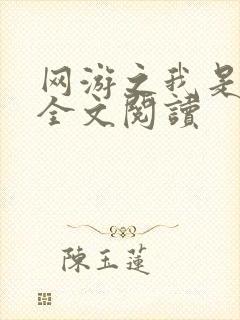 网游之我是
全文閱讀
陳玉蓮